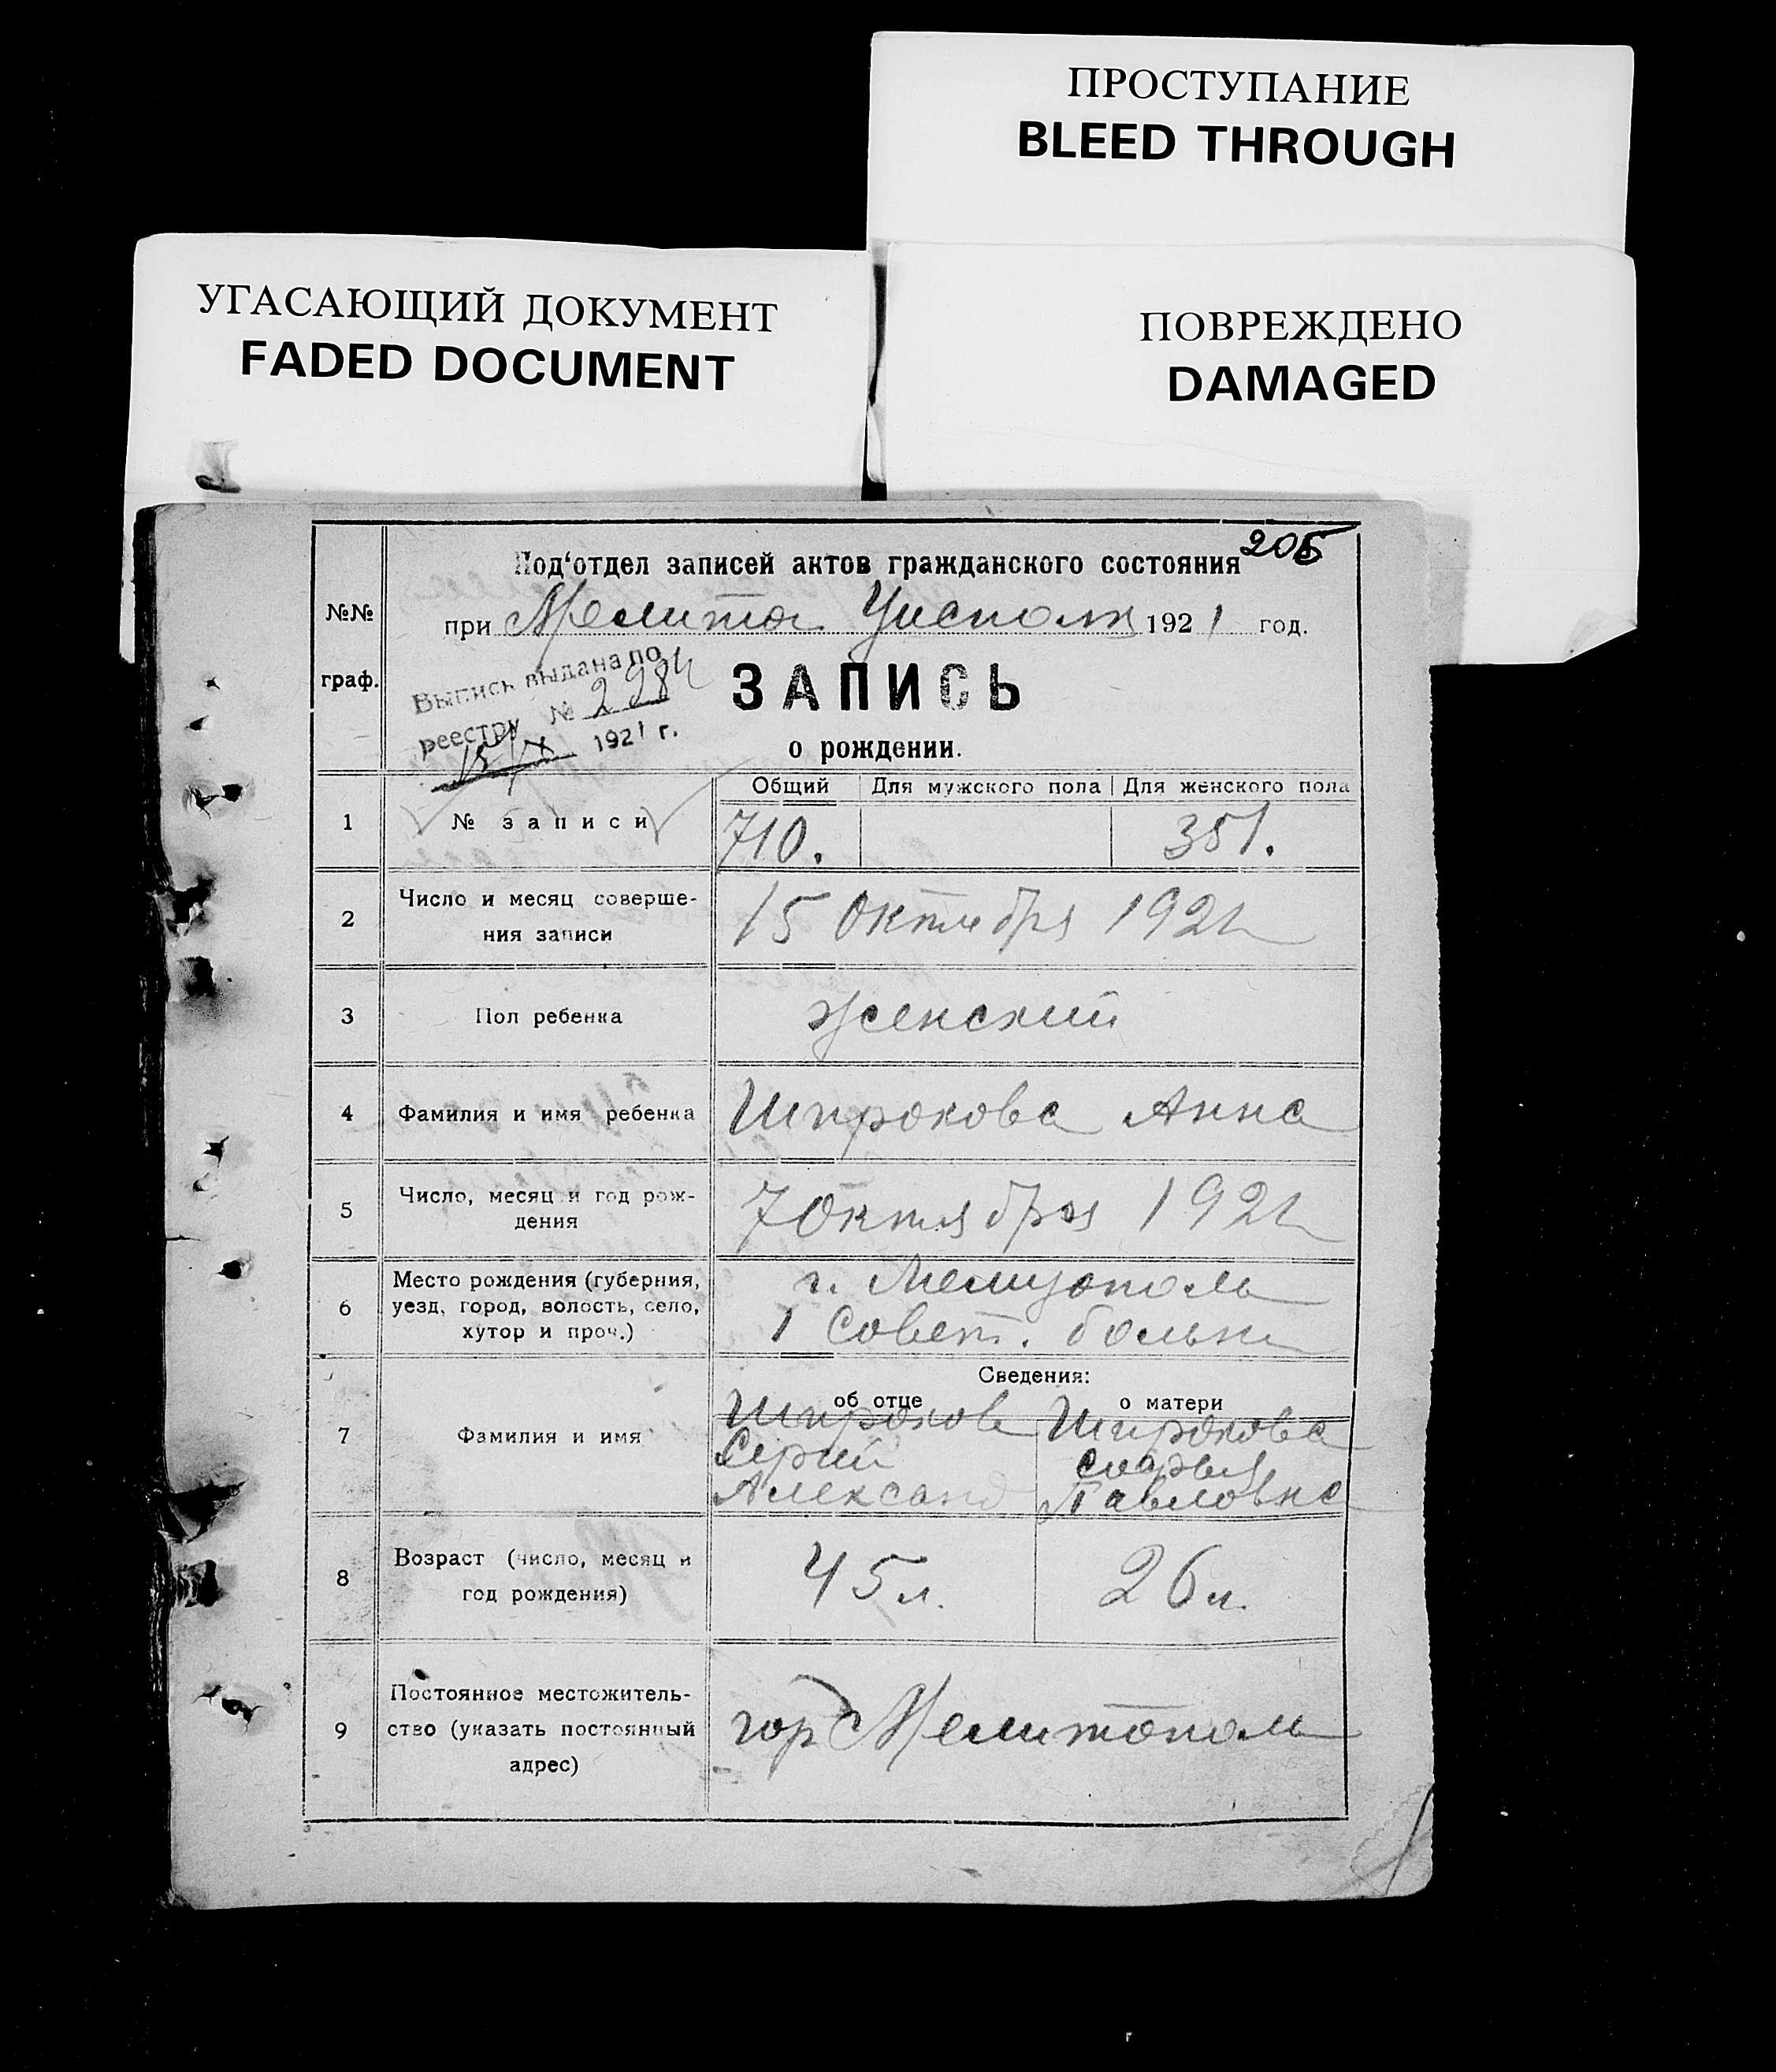 ПРОСТУПАНИЕ
BLEED THROUGH
УГАСАЮЩИЙ ДОКУМЕНТ
FADED DOCUMENT
ПОВРЕЖДЕНО
DAMAGED
205
Под‘отдел записей актов гражданского состояния
при Мелитоп. Уисполк 1921 год.
№№
граф.
Выпись выдана по
реестру № 2984
15/X 1921 г.
ЗАПИСЬ
о рождении.
Общий Для мужского пола Для женского пола
1 № записи 710. 351.
2 Число и месяц соверше-
ния записи
15 Октября 1921
3 Пол ребенка женский
4 Фамилия и имя ребенка Широкова Анна
5 Число, месяц и год рож-
дения
7 Октября 1921
6 Место рождения (губерния,
уезд, город, волость, село,
хутор и проч.)
г. Мелитополь
1 Совет. больн
Сведения:
об отце о матери
7 Фамилия и имя
Широков Широкова
Сергий Софья
Александ Павловна
8 Возраст (число, месяц и
год рождения)
45 л. 26 л.
9 Постоянное местожитель-
ство (указать постоянный
адрес)
гор Мелитополь